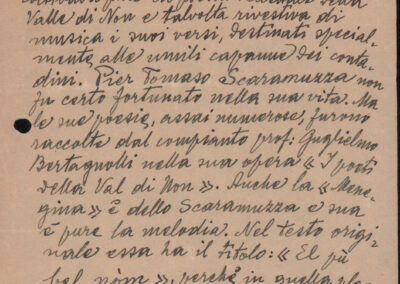 Valle di Non e talvolta rivestiva di
musica i suoi versi, destinati special-
mente, alle umili capanne dei conta-
dini. Pier Tomaso Scaramuzza non
fu certo fortunato nella sua vita. Ma
le sue poesie, assai numerose, furono
raccolte dal compianto prof: Guglielmo
Bertagnolli nella sua opera « I poeti
della Val di Non ». Anche la « Mene-
gina » è dello Scaramuzza e sua
è pure la melodia. Nel testo origi-
nale essa ha il titolo: « El pù
bel nòm », perchè in quella